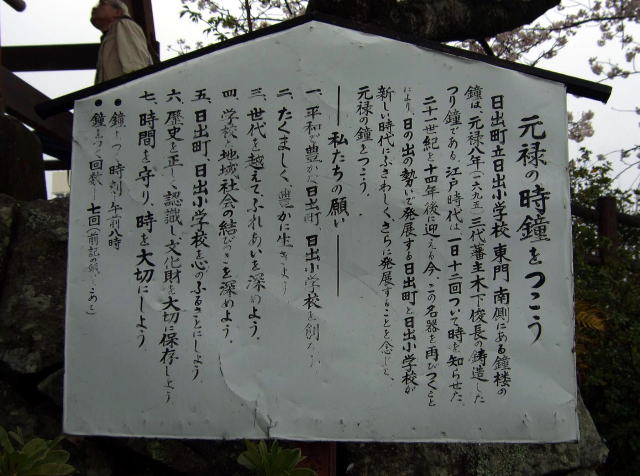 元禄の時鐘をつこう
日出町立日出小学校 東門 南側にある鐘楼の
鐘は、元禄八年(一六九五)三代藩主木下俊長の鋳造した
つり鐘である。江戸時代は、一日十二回ついて時を知らせた。
二十一世紀を十四年後に迎える今、この名器を再びつくこと
により、日の出の勢いで発展する日出町と日出小学校が
新しい時代にふさわしく、さらに発展することを念じ、
元禄の鐘をつこう。
――私たちの願い――
一、平和で豊かな日出町、日出小学校を創ろう。
二、たくましく、豊かに生きよう。
三、世代を越えて、ふれあいを深めよう。
四、学校と地域社会の結びつきを深めよう。
五、日出町、日出小学校を心のふるさとにしよう。
六、歴史を正しく認識し、文化財を大切に保存しよう
七、時間を守り、時を大切にしよう。
● 鐘をつく時刻 午前八時
● 鐘をつく回数 七回(前記の願いをこめて)